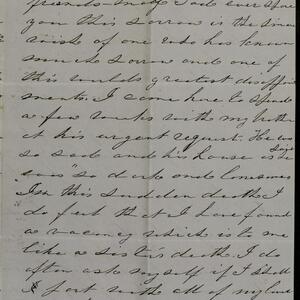 friends— may God ever spare
you this sorrow is the sincere
wish of one who has known
much sorrow and one of
this worlds greatest disappoint
ments. I come here to spend
a few weeks with my brother
at his urgent request. He was
so sad and his house is he says
"so dark and lonesome"
In this sudden death I
do feel that I have found
a vacancy which is to me
like a sister's death. I do
often ask myself if I shall
part with all of my loved